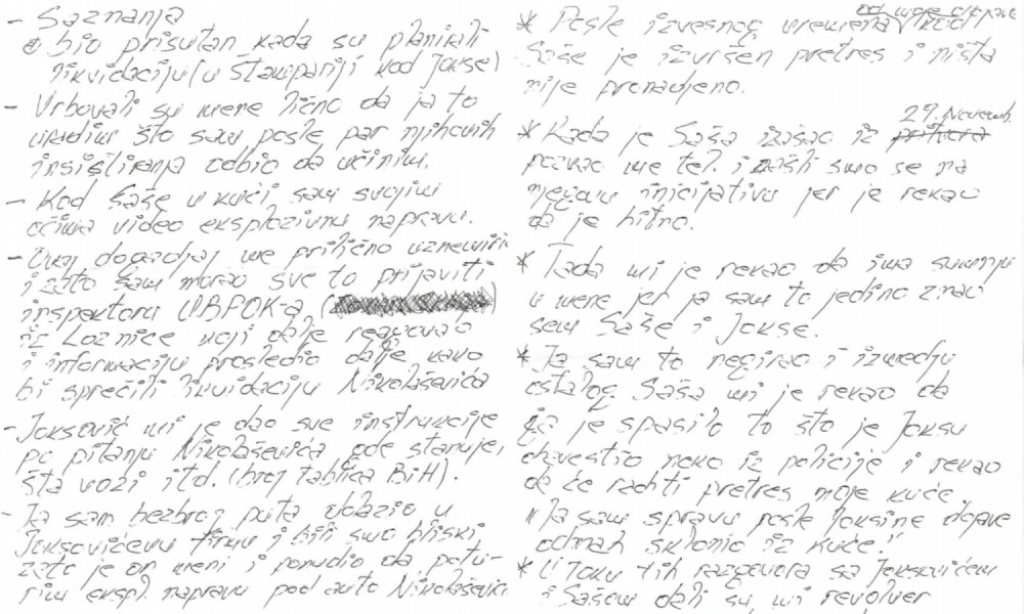 - Saznanja
bio prisutan kada su planirali
likvidaciju (u štampariji kod Jokse)
- Vrbovali su mene lično da ja to
uradim što sam posle par njihovih
insistiranja odbio da učinim.
- Kod Saše u kući sam svojim
očima video eksplozivnu napravu.
- Ovaj dogadjaj me prilično uznemirio
i zato sam morao sve to prijaviti
inspektoru UBPOK-a (
iz Loznice koji dalje reagovao
i informaciju prosledio dalje kako
bi sprečili likvidaciju Nikolaševića
- Joksović mi je dao sve instrukcije
po pitanju Nikolaševića gde stanuje,
šta vozi itd. (broj tablica BiH).
- Ja sam bezbroj puta ulazio u
Joksovićevu firmu i bili smo bliski
zato je on meni i ponudio da potu-
rim ekspl. napravu pod auto Nikolaševića
* Posle izvesnog vremena kod
Saše je izvršen pretres i ništa
nije pronadjeno.
29. Novemb.
* Kada je Saša izašao iz pritvora
pozvao me tel. i našli smo se na
njegovu inicijativu jer je rekao
da je hitno.
* Tada mi je rekao da ima sumnju
u mene jer ja sam to jedino znao
sem Saše i Jokse.
* Ja sam to negirao i izmedju
ostalog Saša mi je rekao da
ga je spasilo to što je Joksu
obavestio neko iz policije i rekao
da će raditi pretres moje kuće.
"Ja sam spravu posle Joksine dojave
odmah sklonio iz kuće."
* U toku tih razgovora sa Joksovićem
i Sašom dali su mi revolver